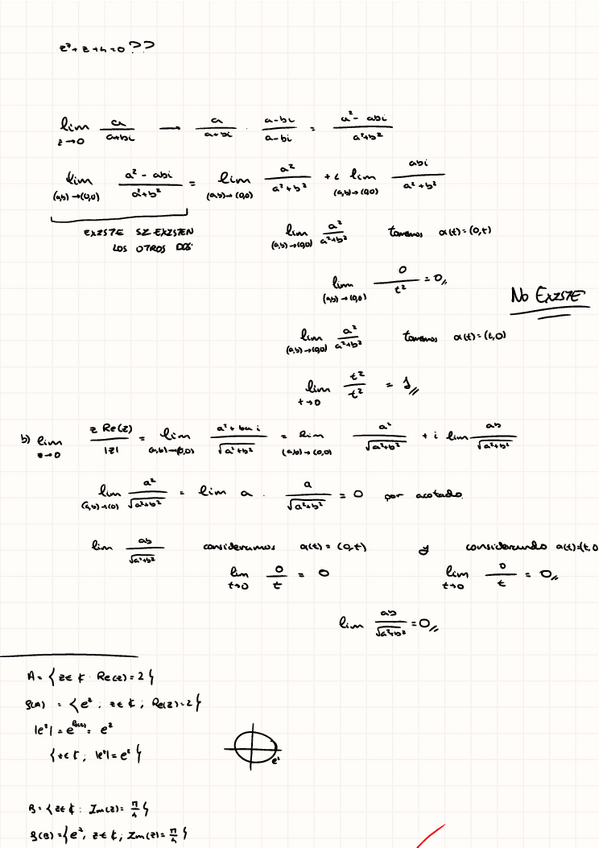 z² + z + 4 = 0 ??
lim z→0 a/(a+bi) → a/(a+bi) · (a-bi)/(a-bi) = (a² - abi)/(a²+b²)
lim (a,b)→(0,0) (a² - abi)/(a²+b²) = lim (a,b)→(0,0) a²/(a²+b²) + i lim (a,b)→(0,0) abi/(a²+b²)
EXISTE SI EXISTEN
LOS OTROS DOS
lim (a,b)→(0,0) a²/(a²+b²) tomamos α(t)=(0,t)
lim (a,b)→(0,0) 0/t² = 0
No EXISTE
lim (a,b)→(0,0) a²/(a²+b²) tomamos α(t)=(t,0)
lim t→0 t²/t² = 1
b) lim z→0 z Re(z)/|z| = lim (a,b)→(0,0) (a² + ba i)/√(a²+b²) = lim (a,b)→(0,0) a²/√(a²+b²) + i lim ab/√(a²+b²)
lim (a,b)→(0) a²/√(a²+b²) = lim a · a/√(a²+b²) = 0 por acotado
lim ab/√(a²+b²) consideramos α(t) = (0,t) y considerando α(t)=(t,0
lim t→0 0/t = 0 lim t→0 0/t = 0
lim ab/√(a²+b²) = 0
A = { z ∈ ℂ : Re(z) = 2 }
f(A) = { e^z, z ∈ ℂ, Re(z)=2 }
|e^z| = e^Re(z) = e²
{ z ∈ ℂ, |e^z| = e² }
e²
B = { z ∈ ℂ : Im(z) = π/4 }
f(B) = { e^z, z ∈ ℂ, Im(z) = π/4 }